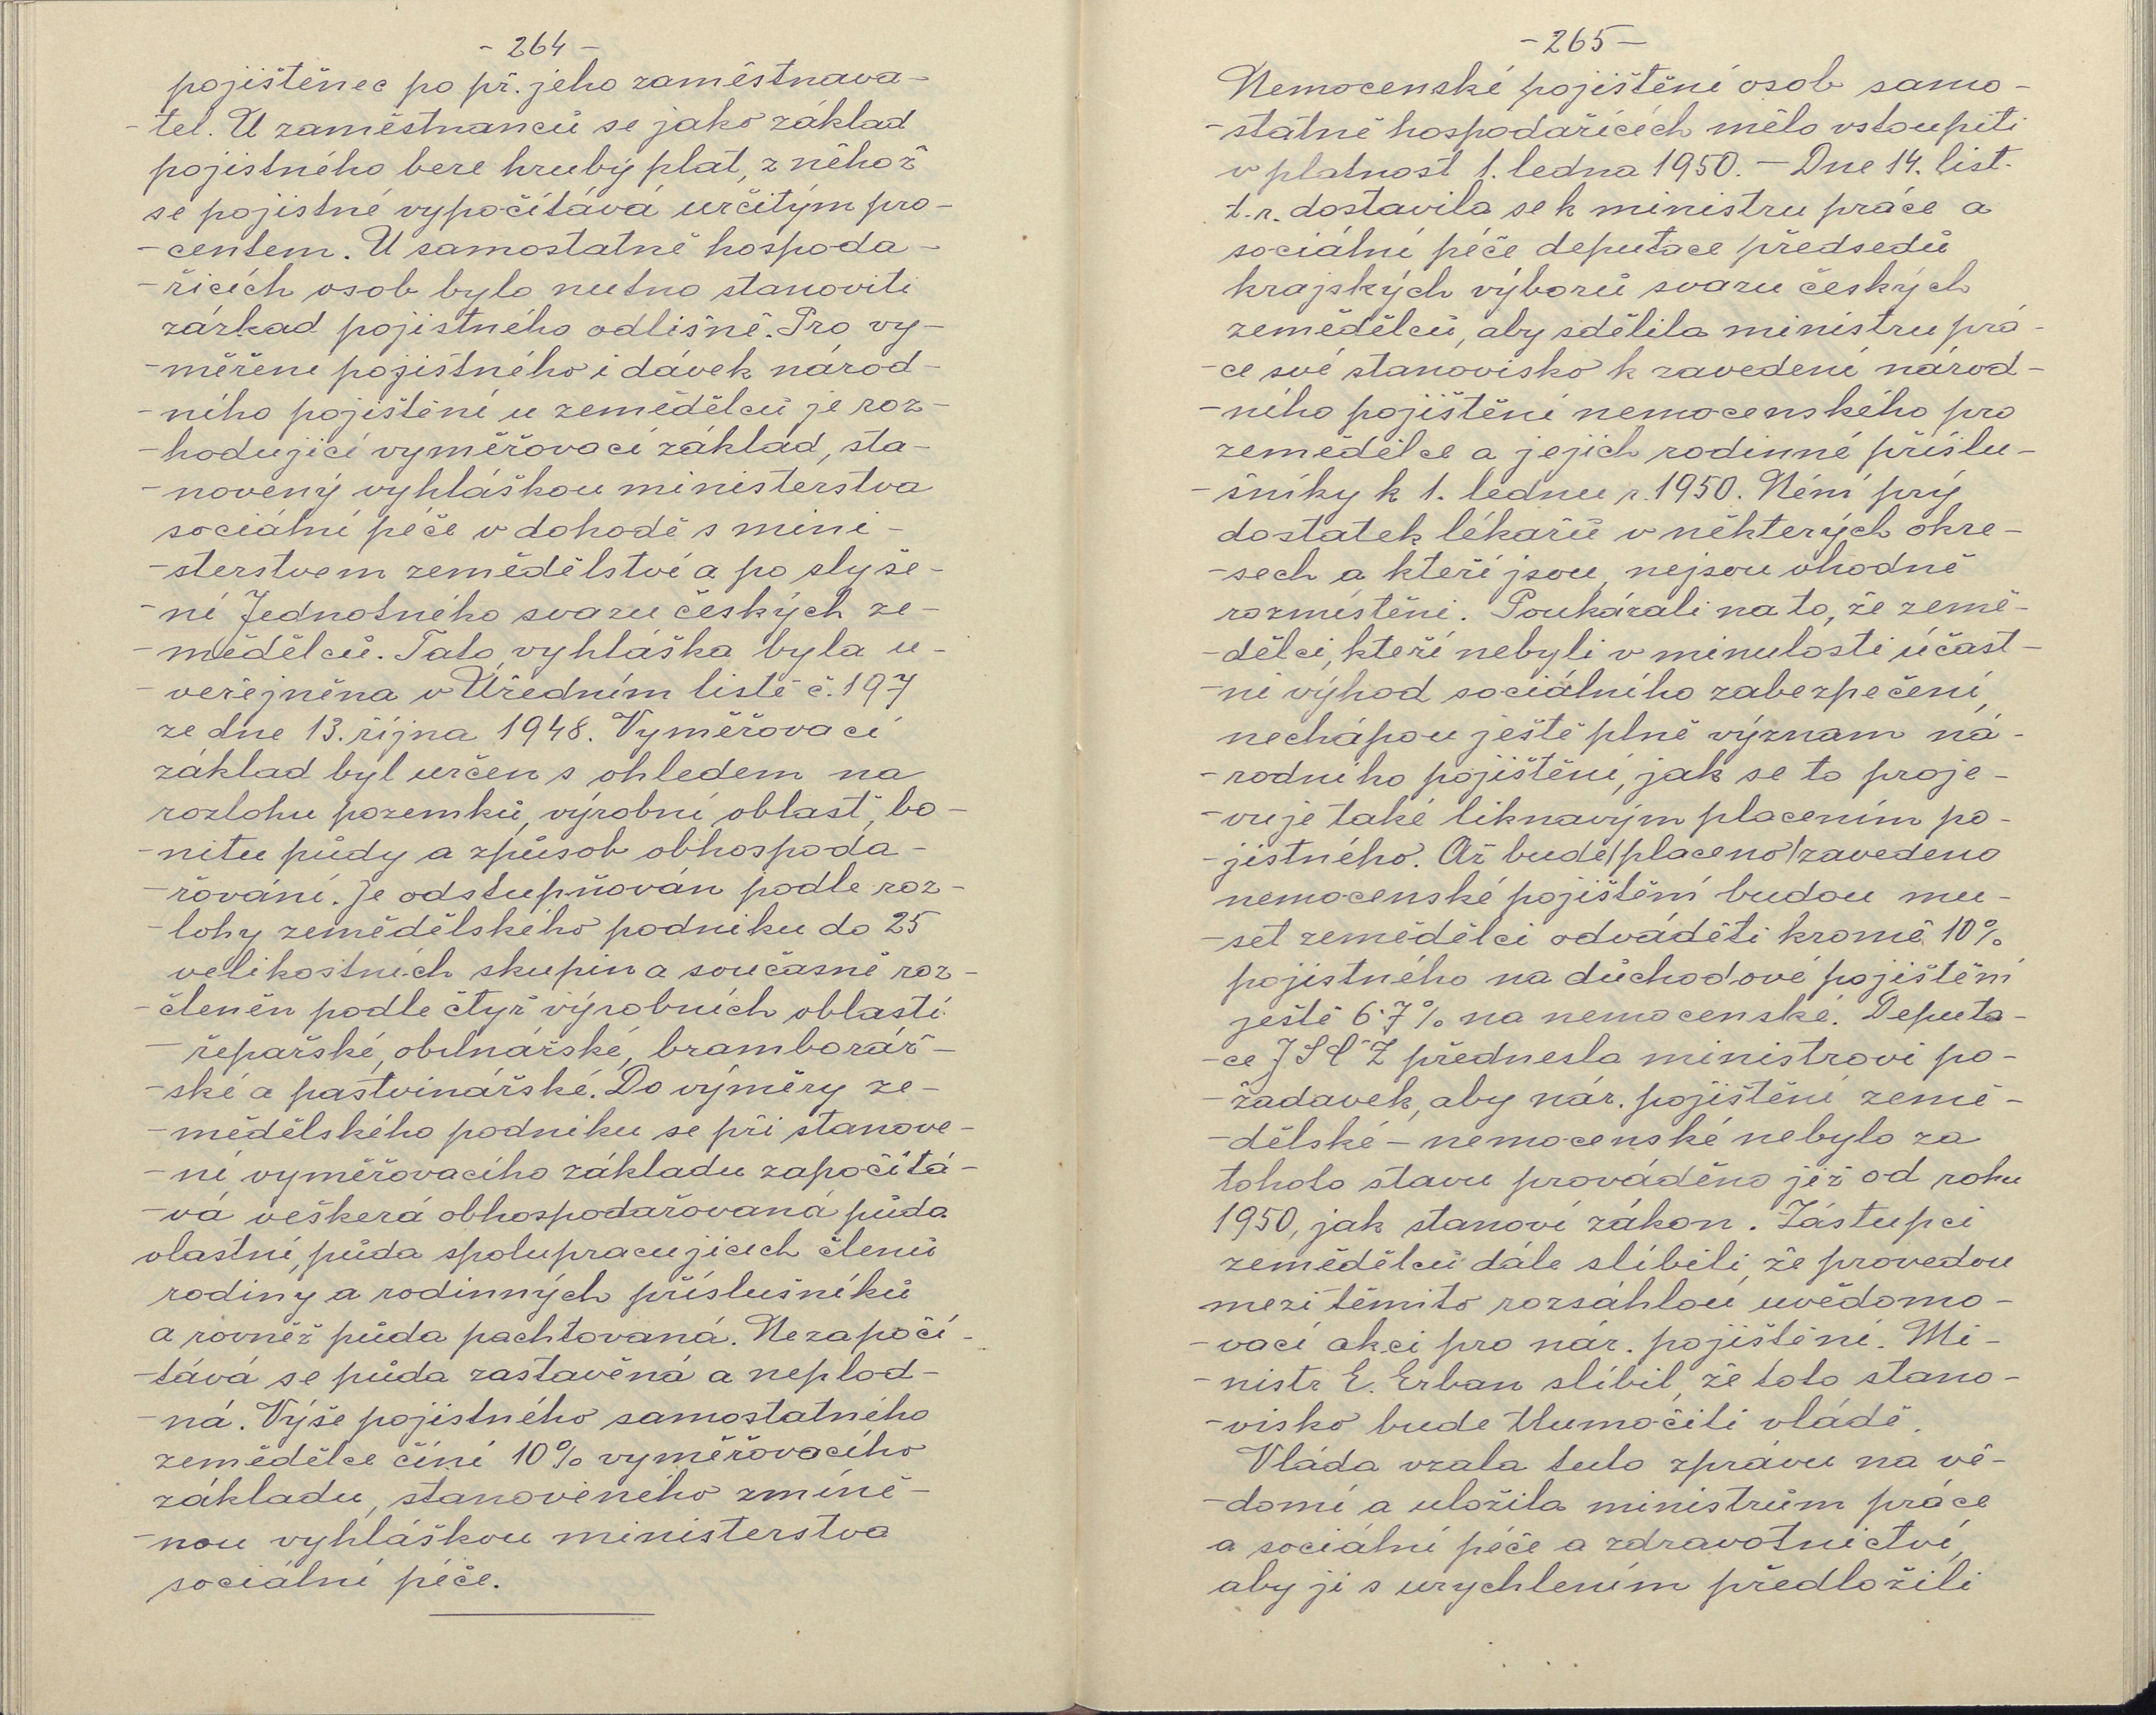 - 264 -
pojištěnec po př. jeho zaměstnava-
-tel. U zaměstnanců se jako základ
pojistného bere hrubý plat, z něhož
se pojistné vypočítává určitým pro-
-centem. U samostatně hospoda-
-řících osob bylo nutno stanoviti
zárkad pojistného odlišně. Pro vy-
-měření pojistného i dávek národ-
-ního pojištění u zemědělců je roz-
-hodující vyměřovací základ, sta-
-novený vyhláškou ministerstva
sociální péče v dohodě s mini-
-sterstvem zemědělství a po slyše-
-ní Jednotného svazu českých ze-
-mědělců. Tato vyhláška byla u-
-veřejněna v Úředním listě č. 197
ze dne 13. října 1948. Vyměřovací
základ byl určen s ohledem na
rozlohu pozemků, výrobní oblast, bo-
-nitu půdy a způsob obhospoda-
-řování. Je odstupňován podle roz-
-lohy zemědělského podniku do 25
velikostních skupin a současně roz-
-členěn podle čtyř výrobních oblastí
-řepařské, obilnářské, bramborář-
-ské a pastvinářské. Do výměry ze-
-mědělského podniku se při stanove-
-ní vyměřovacího základu započítá-
-vá veškerá obhospodařovaná půda
vlastní, půda spolupracujících členů
rodiny a rodinných příslušníků
a rovněž půda pachtovaná. Nezapočí-
-tává se půda zastavěná a neplod-
-ná. Výše pojistného samostatného
zemědělce činí 10% vyměřovacího
základu, stanoveného zmíně-
-nou vyhláškou ministerstva
sociální péče.
- 265 -
Nemocenské pojištění osob samo-
-statně hospodařících mělo vstoupiti
v platnost 1. ledna 1950. - Dne 14. list.
t.r. dostavila se k ministru práce a
sociální péče deputace předsedů
krajských výborů svazu českých
zemědělců, aby sdělila ministru prá-
-ce své stanovisko k zavedení národ-
-ního pojištění nemocenského pro
zemědělce a jejich rodinné příslu-
-šníky k 1. lednu r. 1950. Není prý
dostatek lékařů v některých okre-
-sech a kteří jsou, nejsou vhodně
rozmístěni. Poukázali na to, že země-
-dělci, kteří nebyli v minulosti účast-
-ni výhod sociálního zabezpečení,
nechápou ještě plně význam ná-
-rodního pojištění, jak se to proje-
-vuje také liknavým placením po-
-jistného. Až bude /placeno/ zavedeno
nemocenské pojištění budou mu-
-set zemědělci odváděti kromě 10%
pojistného na důchodové pojištění
ještě 6·7% na nemocenské. Deputa-
-ce JSČZ přednesla ministrovi po-
-žadavek, aby nár. pojištění země-
-dělské - nemocenské nebylo za
tohoto stavu prováděno již od roku
1950, jak stanoví zákon. Zástupci
zemědělců dále slíbili, že provedou
mezi těmito rozsáhlou uvědomo-
-vací akci pro nár. pojištění. Mi-
-nistr E. Erban slíbil, že toto stano-
-visko bude tlumočiti vládě.
Vláda vzala tuto zprávu na vě-
-domí a uložila ministrům práce
a sociální péče a zdravotnictví,
aby jí s urychlením předložili